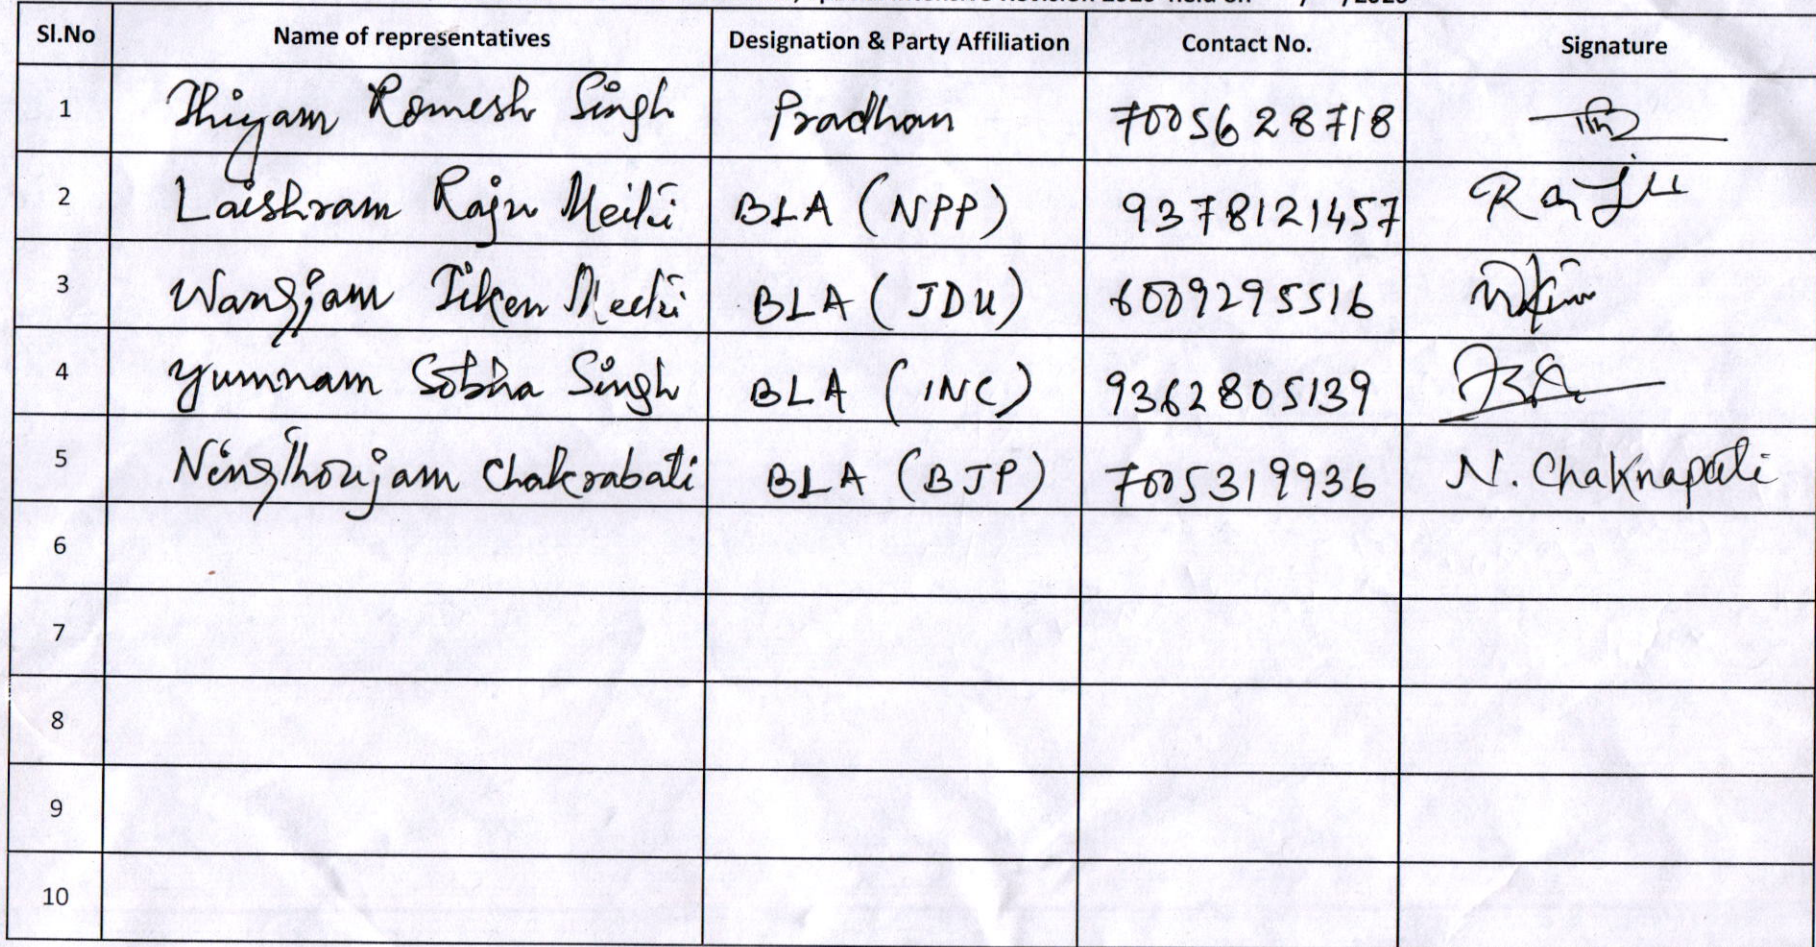 Revision 2026 held on / /2026
Sl.No Name of representatives Designation & Party Affiliation Contact No. Signature
1 Thiyam Romesh Singh Pradhan 7005628718
2 Laishram Raju Meitei BLA (NPP) 9378121457 Raju
3 Wangjam Tiken Meetei BLA (JDU) 6009295516
4 Yumnam Sobha Singh BLA (INC) 9362805139
5 Ningthoujam Chakrabati BLA (BJP) 7005319936 N. Chaknapati
6
7
8
9
10